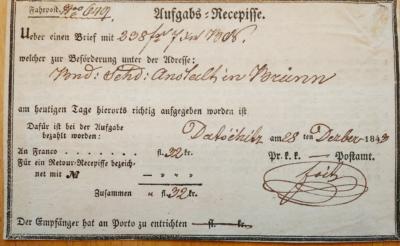 Fahrpost. No 649. Aufgabs-Recepisse.
Ueber einen Brief mit 238 f
welcher zur Beförderung unter der Adresse:
in Brünn
am heutigen Tage hierorts richtig aufgegeben worden ist
Dafür ist bei der Aufgabe
bezahlt worden: Datschitz am 28 ten Dezber 1843
An Franco — fl. 32 kr. Pr. k. k. — Postamt.
Für ein Retour-Recepisse bezeich-
net mit № — „ — „
Zusammen „ fl. 32 kr.
Der Empfänger hat an Porto zu entrichten — fl. — kr.